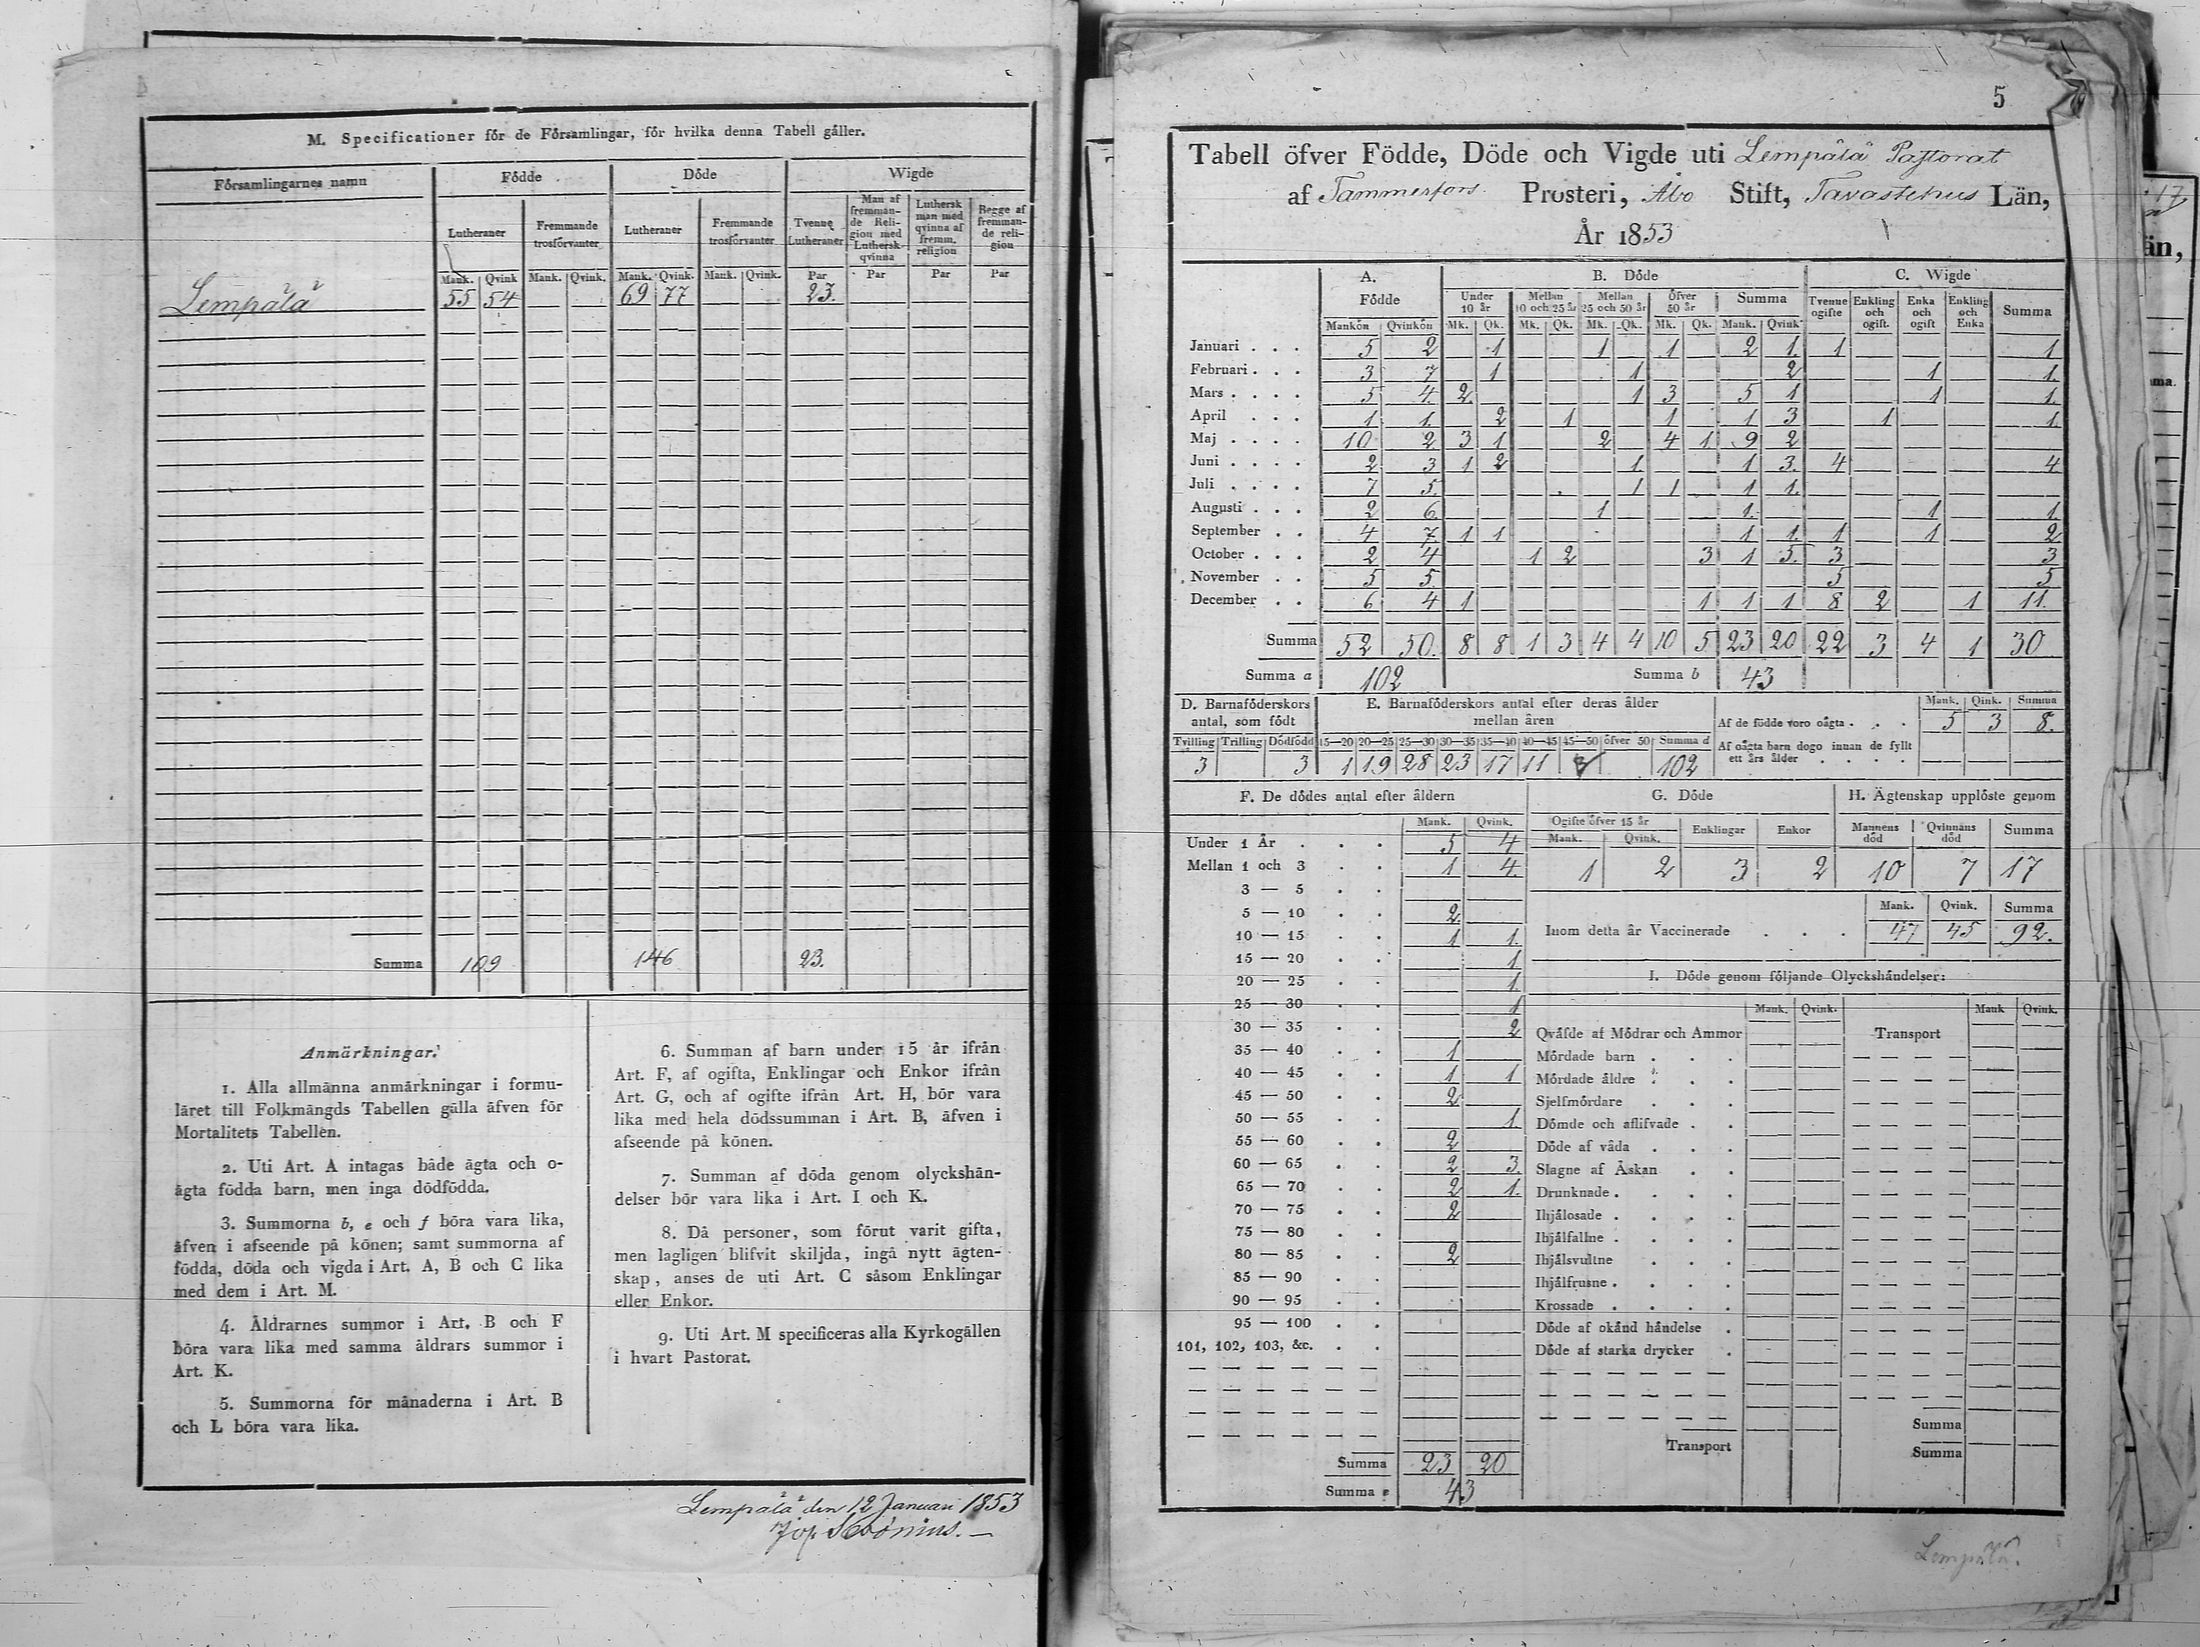 M. Specificationer för de Församlingar, för hvilka denna Tabell gäller.
Församlingarnes namn Födde Döde Wigde
Lutheraner Fremmande trosförvanter Lutheraner Fremmande trosförvanter Tvenne Lutheraner Man af fremmande Religion med Luthersk qvinna Luthersk man med qvinna af fremm. religion Begge af fremmande religion
Mank. Qvink Mank. Qvink. Mank. Qvink. Mank. Qvink. Par Par Par Par
Lempälä 55 54 69 77 23.
Summa 109 146 23.
Anmärkningar.
1. Alla allmänna anmärkningar i formu-
läret till Folkmängds Tabellen gälla äfven för
Mortalitets Tabellen.
2. Uti Art. A intagas både ägta och o-
ägta födda barn, men inga dödfödda.
3. Summorna b, e och f böra vara lika,
äfven i afseende på könen; samt summorna af
födda, döda och vigda i Art. A, B och C lika
med dem i Art. M.
4. Äldrarnes summor i Art. B och F
böra vara lika med samma åldrars summor i
Art. K.
5. Summorna för månaderna i Art. B
och L böra vara lika.
6. Summan af barn under 15 år ifrån
Art. F, af ogifta, Enklingar och Enkor ifrån
Art. G, och af ogifte ifrån Art. H, bör vara
lika med hela dödssumman i Art. B, äfven i
afseende på könen.
7. Summan af döda genom olyckshän-
delser bör vara lika i Art. I och K.
8. Då personer, som förut varit gifta,
men lagligen blifvit skiljda, ingå nytt ägten-
skap, anses de uti Art. C såsom Enklingar
eller Enkor.
9. Uti Art. M specificeras alla Kyrkogällen
i hvart Pastorat.
Lempälä den 12 Januari 1853
5
Tabell öfver Födde, Döde och Vigde uti Lempälä Pastorat
af Tammerfors Prosteri, Åbo Stift, Tavastehus Län,
År 1853
A. Födde B. Döde C. Wigde
Under 10 år Mellan 10 och 25 år Mellan 25 och 50 år Öfver 50 år Summa Tvenne ogifte Enkling och ogift. Enka och ogift Enkling och Enka Summa
Mankön Qvinkön Mk. Qk. Mk. Qk. Mk. Qk. Mk. Qk. Mank. Qvink
Januari 5 2 1 1 1 2 1. 1 1
Februari 3 7 1 1 2 1 1.
Mars 5 4. 2. 1 3 5 1 1 1.
April 1 1. 2 1 1 1 3 1 1.
Maj 10 2 3 1 2 4 1 9 2
Juni 2 3 1 2 1. 1 3. 4 4
Juli 7 5. 1 1 1 1.
Augusti 2 6. 1 1. 1 1.
September 4 7. 1 1 1 1. 1 1 2
October 2 4 1 2 3 1 5. 3 3
November 5 5. 5 5
December 6 4 1 1 1 1 8 2 1 11.
Summa 52 50. 8 8 1 3 4 4 10 5 23 20 22 3 4 1 30
Summa a 102 Summa b 43
D. Barnaföderskors antal, som födt
Tvilling Trilling Dödfödd
3 3
E. Barnaföderskors antal efter deras ålder mellan åren
15—20 20—25 25—30 30—35 35—40 40—45 45—50 öfver 50 Summa d
1 19 28 23 17 11 3 102
Mank. Qink. Summa
Af de födde voro oägta 5 3 8.
Af oägta barn dogo innan de fyllt
ett års ålder
F. De dödes antal efter åldern
Mank. Qvink.
Under 1 År 5 4
Mellan 1 och 3 1 4.
3 — 5
5 — 10 2.
10 — 15 1 1.
15 — 20 1
20 — 25 1.
25 — 30 1
30 — 35 2
35 — 40 1
40 — 45 1 1
45 — 50 2
50 — 55 1.
55 — 60 2
60 — 65 2 3.
65 — 70 2 1.
70 — 75 2
75 — 80
80 — 85 2
85 — 90
90 — 95
95 — 100
101, 102, 103, &c.
Summa 23 20
Summa e 43
G. Döde
Ogifte öfver 15 år Enklingar Enkor
Mank. Qvink.
1 2 3 2
H. Ägtenskap upplöste genom
Mannens död Qvinnans död Summa
10 7 17
Mank. Qvink. Summa
Inom detta år Vaccinerade 47 45 92.
I. Döde genom följande Olyckshändelser:
Mank. Qvink. Mank Qvink.
Qväfde af Mödrar och Ammor Transport
Mördade barn
Mördade äldre
Sjelfmördare
Dömde och aflifvade
Döde af våda
Slagne af Åskan
Drunknade
Ihjälosade
Ihjälfallne
Ihjälsvultne
Ihjälfrusne
Krossade
Döde af okänd händelse
Döde af starka drycker
Summa
Transport Summa
Lempälä.
17
än,